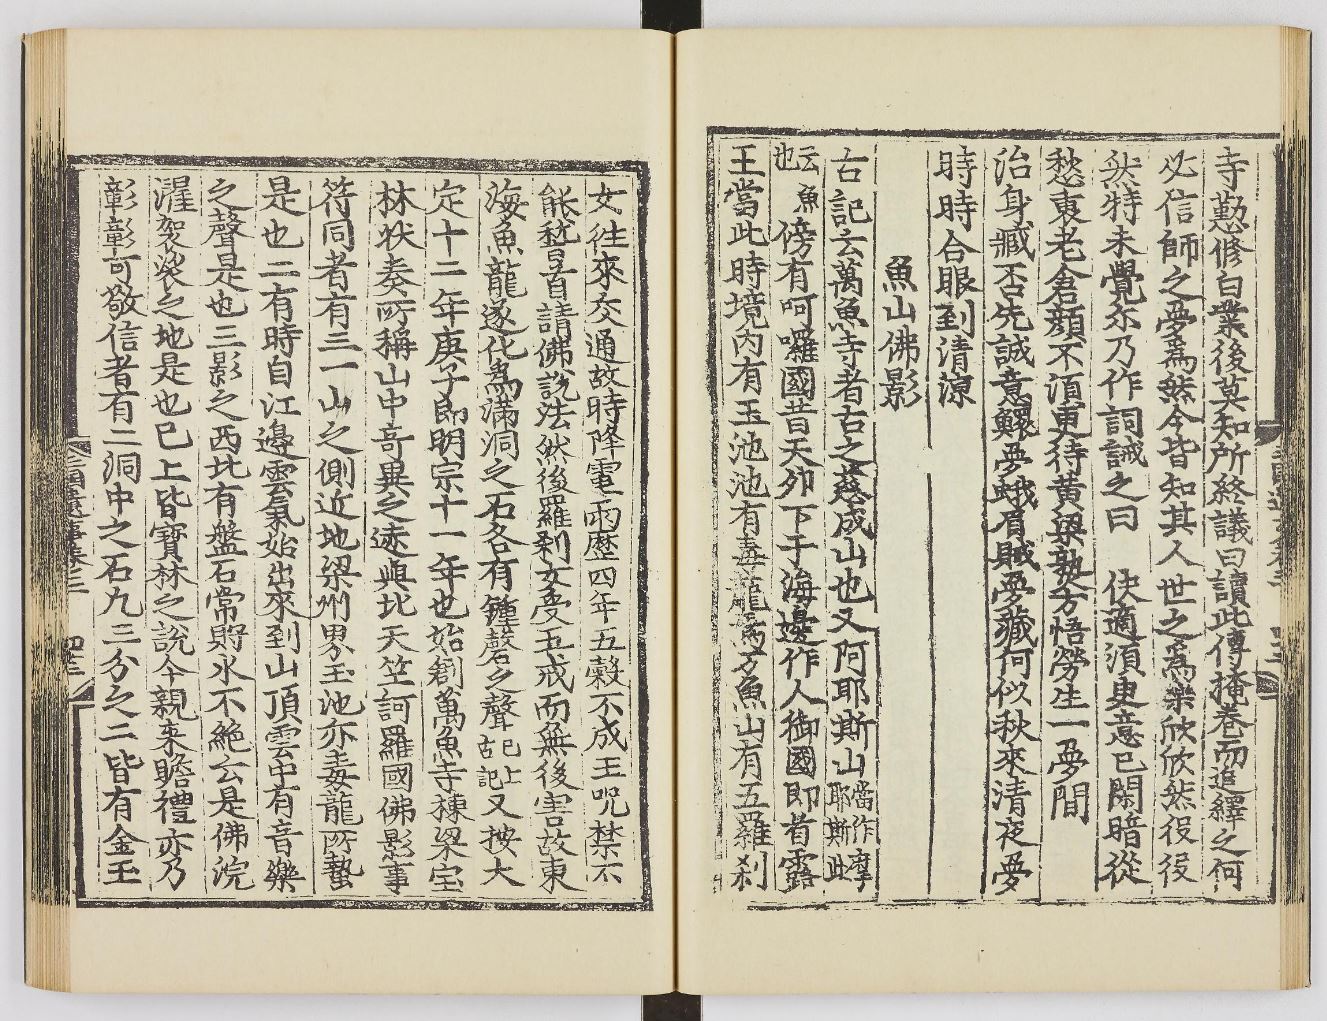 寺懃修白業後莫知所終議曰讀此傳掩卷而追繹之何
必信師之夢爲然今皆知其人世之爲樂欣欣然役役
然特未覺尓乃作詞誡之曰　快適湏臾意已閑暗從
愁裏老倉顔不湏更待黃梁熟方悟勞生一夢間
治身臧不先誠意鰥夢蛾眉賊夢藏何似秋來清夜夢
時時合眼到清凉
魚山佛影
古記云萬魚寺者古之慈成山也又阿耶斯山當作摩耶斯此
云魚也傍有呵囉國昔天夘下于海邊作人御國即首露
王當此時境内有玉池池有毒龍焉萬魚山有五羅刹
女徃來交通故時降電雨歷四年五穀不成王呪禁不
能稽首請佛說法然後羅刹女受五戒而無後害故東
海魚龍遂化爲滿洞之石各有鍾磬之聲已上古記又按大
定十二年庚子即明宗十一年也始創萬魚寺棟梁宝
林状奏所稱山中奇異之迹與北天竺訶羅國佛影事
符同者有三一山之側近地梁州界玉池亦毒龍所蟄
是也二有時自江邊雲氣始出來到山頂雲中有音樂
之聲是也三影之西北有盤石常貯水不絶云是佛浣
濯袈裟之地是也已上皆寶林之說今親來瞻禮亦乃
彰彰可敬信者有二洞中之石凡三分之二皆有金玉
三國遺事卷三